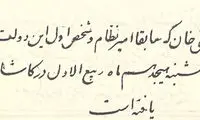 خان که سابقا امیر نظام و شخص اول این دولت
شنبه هیجدهم ماه ربیع الاول در کاشان
یافته است